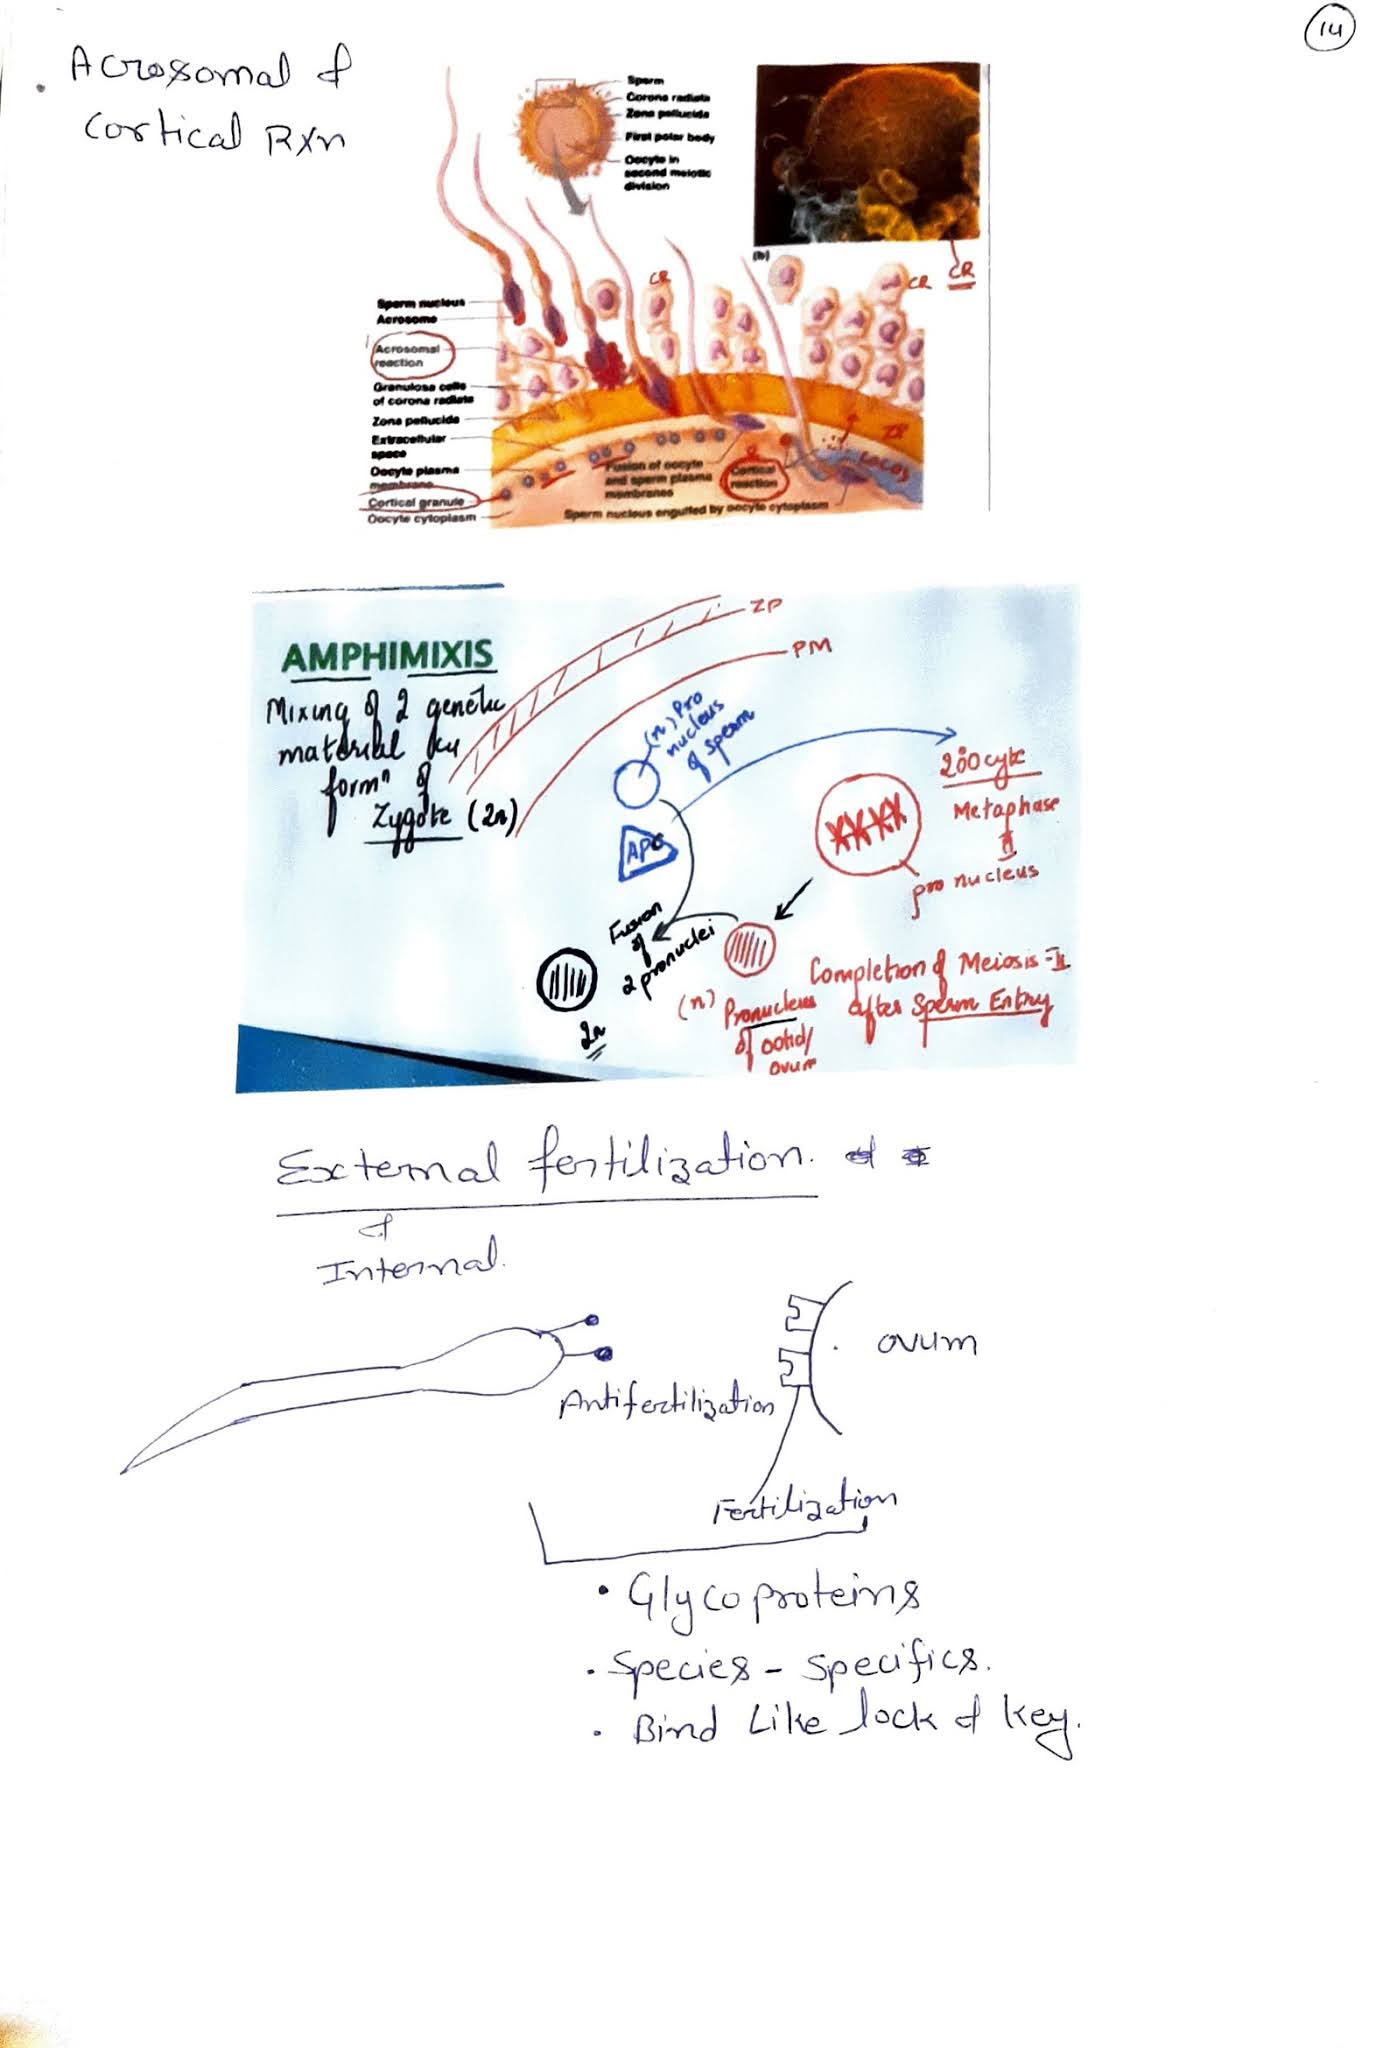 14
Acrosomal &
cortical Rxn
Sperm
Corona radiata
Zona pellucida
First polar body
Oocyte in
second meiotic
division
(b)
CR
CR
CR
Sperm nucleus
Acrosome
Acrosomal
reaction
Granulosa cells
of corona radiata
Zona pellucida
Extracellular
space
Oocyte plasma
membrane
Cortical granule
Oocyte cytoplasm
Fusion of oocyte
and sperm plasma
membranes
Cortical
reaction
ZP
Sperm nucleus engulfed by oocyte cytoplasm
AMPHIMIXIS
Mixing of 2 genetic
material
formⁿ of
Zygote (2n)
ZP
PM
(n) Pro
nucleus
of sperm
APC
2°oocyte
Metaphase
II
pro nucleus
Fusion
of
2 pronuclei
2n
(n) Pronucleus
of ootid/
ovum
Completion of Meiosis-II
after Sperm Entry
External fertilization.
&
Internal.
ovum
Antifertilization
Fertilization
• Glycoproteins
• Species - specifics.
• Bind Like lock & key.